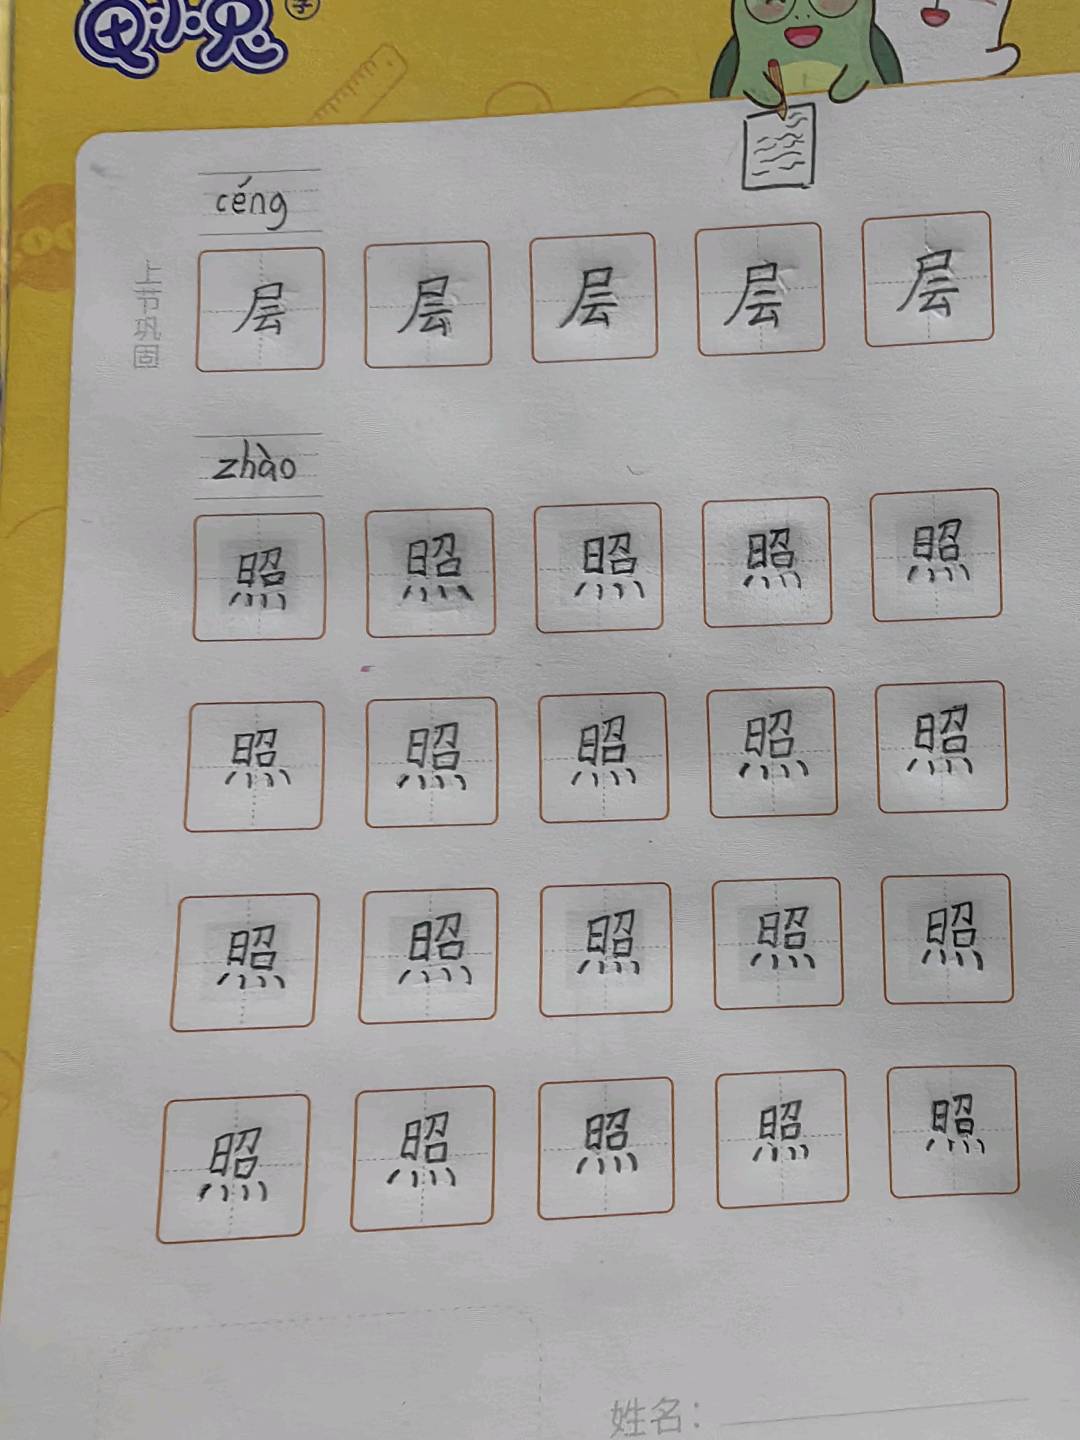 céng
上节巩固
层 层 层 层 层
zhào
照 照 照 照 照
照 照 照 照 照
照 照 照 照 照
照 照 照 照 照
姓名：